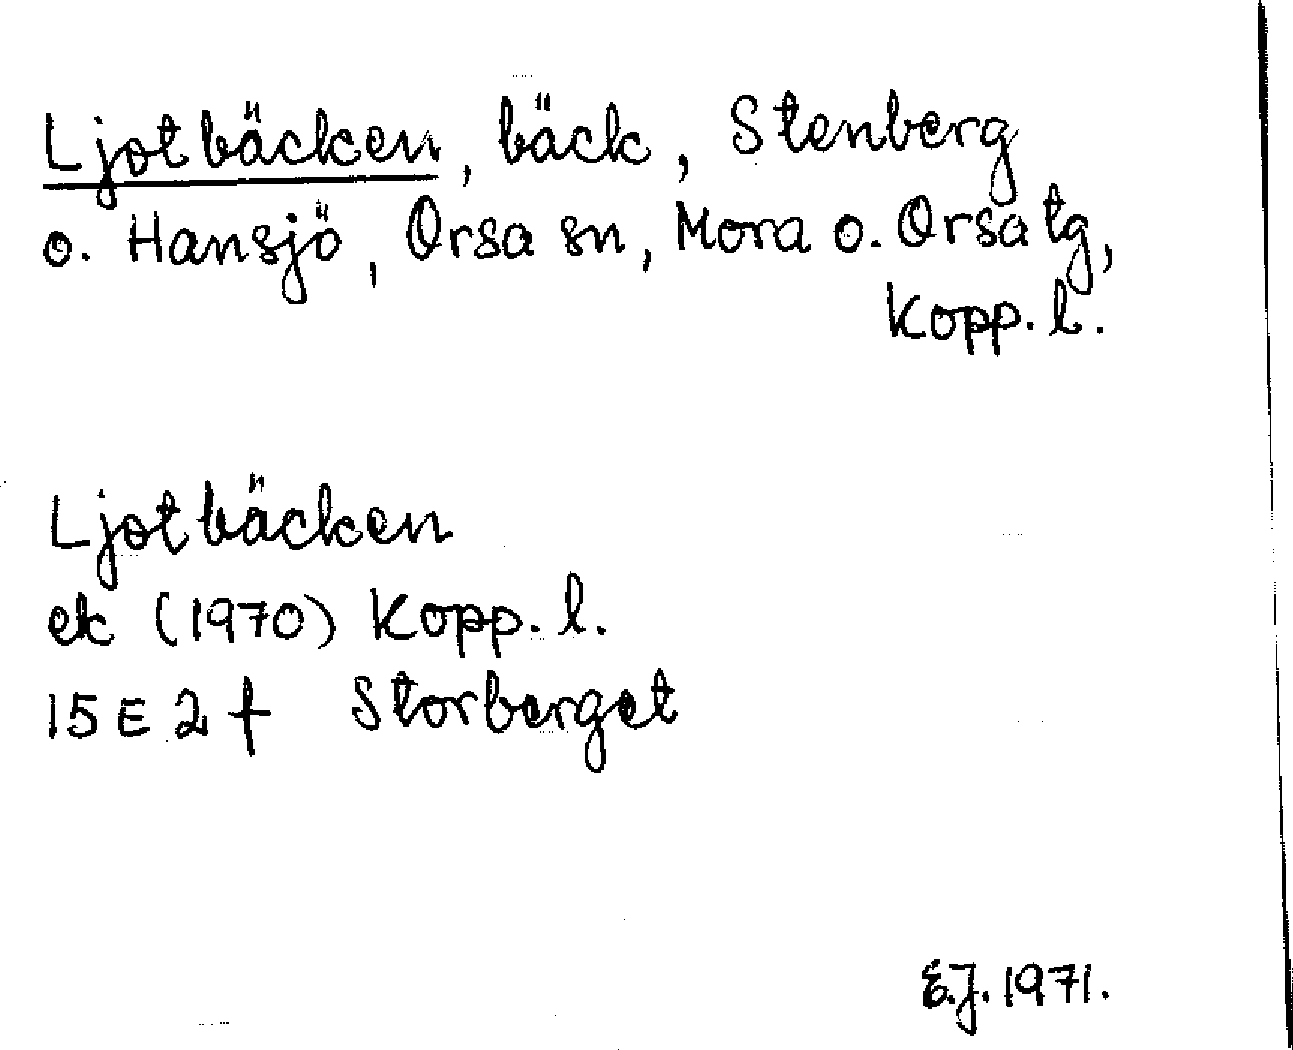 Ljotbäcken, bäck, Stenberg
o. Hansjö, Orsa sn, Mora o. Orsa tg,
Kopp. l.
Ljotbäcken
ek (1970) Kopp. l.
15E 2f Storberget
E.J. 1971.